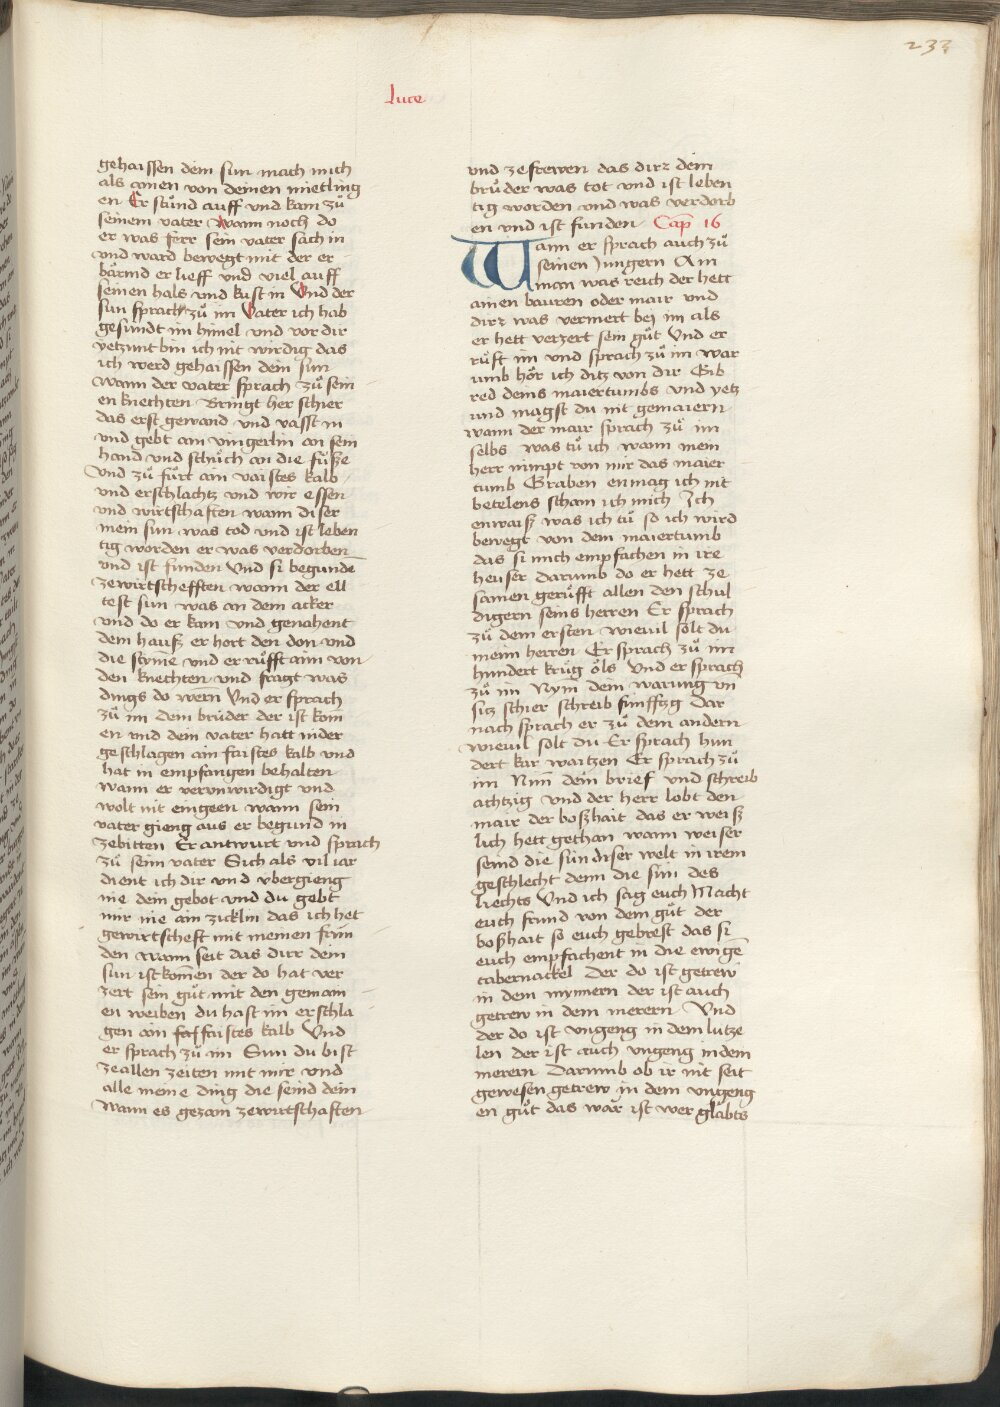 233
luce
gehaissen dein sun mach mich
als ainen von deinen mietling
en Er stůnd auff vnd kam zů
seinem vater Wann noch do
er was ferr sein vater sach in
vnd ward bewegt mit der er
bärmd er lieff vnd viel auff
seinen hals vnd kust in Vnd der
sun sprach zů im Vater ich hab
gesündt im himel vnd vor dir
yetzunt bin ich nit wirdig das
ich werd gehaissen dein sun
wann der vater sprach zů sein
en knechten Bringt her schier
das erst gewand vnd vasst in
vnd gebt ain vingerlin an sein
hand vnd schůch an die füsze
Vnd zů fůrt ain vaistes kalb
vnd erschlachtz vnd wir essen
vnd wirtschaften wann diser
mein sun was tod vnd ist leben
tig worden er was verdorben
vnd ist funden Vnd si begunde
zewirtschefften wann der ell
test sun was an dem acker
vnd do er kam vnd genahent
dem hausz er hort den don vnd
die stÿme vnd er růfft aim von
den knechten vnd fragt was
dings do wern Vnd er sprach
zů im dein brůder der ist kom
en vnd dein vater hatt nider
geschlagen ain faistes kalb vnd
hat in empfangen behalten
wann er vervnwirdigt vnd
wolt nit eingeen wann sein
vater gieng aus er begund in
zebitten Er antwurt vnd sprach
zů seim vater Sich als vil iar
dient ich dir vnd vbergieng
nie dein gebot vnd du gebt
mir nie ain zicklin das ich het
gewirtscheft mit meinen frün
den wann seit das dirr dein
sun ist komen der do hat ver
zert sein gůt mit den gemain
en weiben du hast im erschla
gen ain faistes kalb Vnd
er sprach zů im Sun du bist
zeallen zeiten mit mir vnd
alle meine ding die seind dein
wann es gezam zewirtschaften
vnd zefrewen das dirz dein
brůder was tot vnd ist leben
tig worden vnd was verdorb
en vnd ist funden Cap 16
Wann er sprach auch zů
seinen Jungern Ain
man was reich der hett
ainen bauren oder mair vnd
dirz was vermert bej im als
er hett verzert sein gůt Vnd er
růft im vnd sprach zů im war
umb hör ich ditz von dir Gib
red deins maiertumbs vnd yetz
und magst du nit gemaiern
wann der mair sprach zů im
selbs was tů ich wann mein
herr nimpt von mir das maier
tumb Graben enmag ich nit
betelens scham ich mich Ich
enwaisz was ich tů so ich wird
bewegt von dem maiertumb
das si mich empfachen in ire
heuser darumb do er hett ze
samen gerůfft allen den schul
digern seins herren Er sprach
zů dem ersten wieuil solt du
meim herren Er sprach zů im
hundert krůg öls Vnd er sprach
zů im Nym dein warung vn
sitz schier schreib fünffzg Dar
nach sprach er zů dem andern
wieuil solt du Er sprach hun
dert kar waitzen Er sprach zů
im Nim dein brief vnd schreib
achtzig vnd der herr lobt den
mair der boszhait das er weisz
lich hett gethan wann weiser
seind die sün diser welt in irem
geschlecht denn die sün des
liechts Vnd ich sag euch Macht
euch frund von dem gůt der
boszhait so euch gebrest das si
euch empfachent in die ewige
tabernackel Der do ist getrew
in dem mynnern der ist auch
getrew in dem merern Vnd
der do ist vngeng in dem lutze
len der ist auch vngeng in dem
merern Darumb ob ir nit seit
gewesen getrew in dem vngeng
en gůt das war ist wer glabts